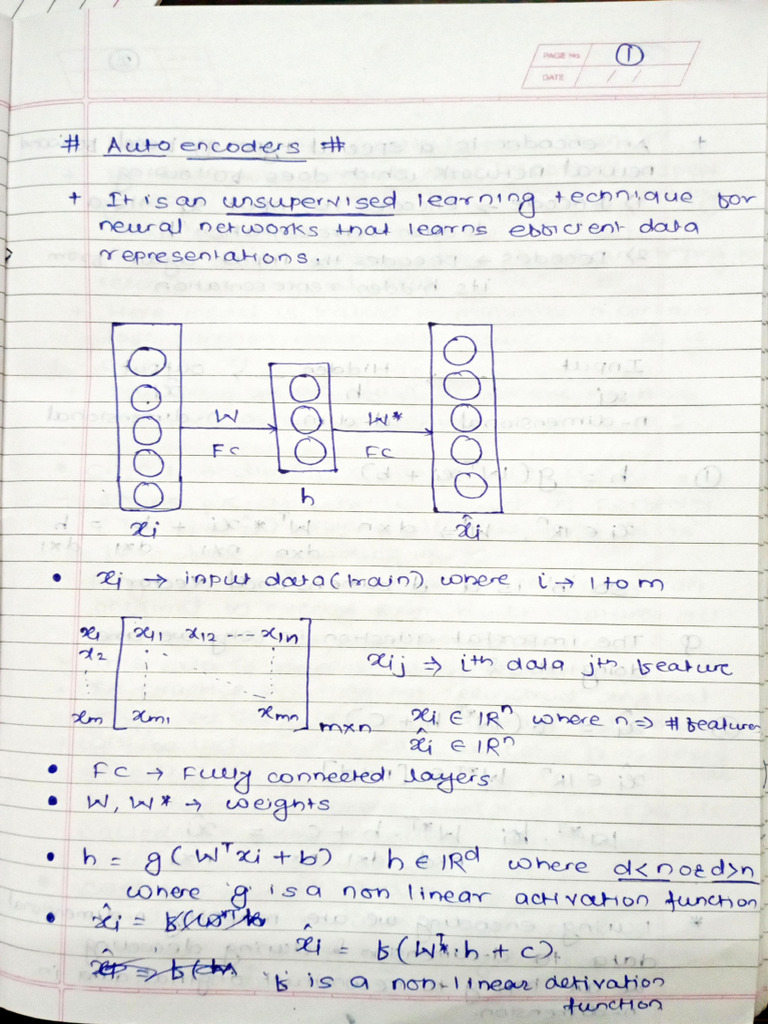 PAGE No. 1
DATE / /
# Autoencoders #
+ It is an unsupervised learning technique for
neural networks that learns efficient data
representations.
W W*
FC FC
h
xi x̂i
• xi → input data (train), where i → 1 to m
x1 [ x11 x12 --- x1n ]
x2 xij ⇒ ith data jth feature
xm [ xm1 xmn ] m×n xi ∈ IRn where n ⇒ # features
x̂i ∈ IRn
• FC → Fully connected layers
• W, W* → weights
• h = g(WTxi + b) h ∈ IRd where d<n or d>n
where 'g' is a non linear activation function
• x̂i =
x̂i = f(W*T.h + c)
f is a non-linear derivation
function